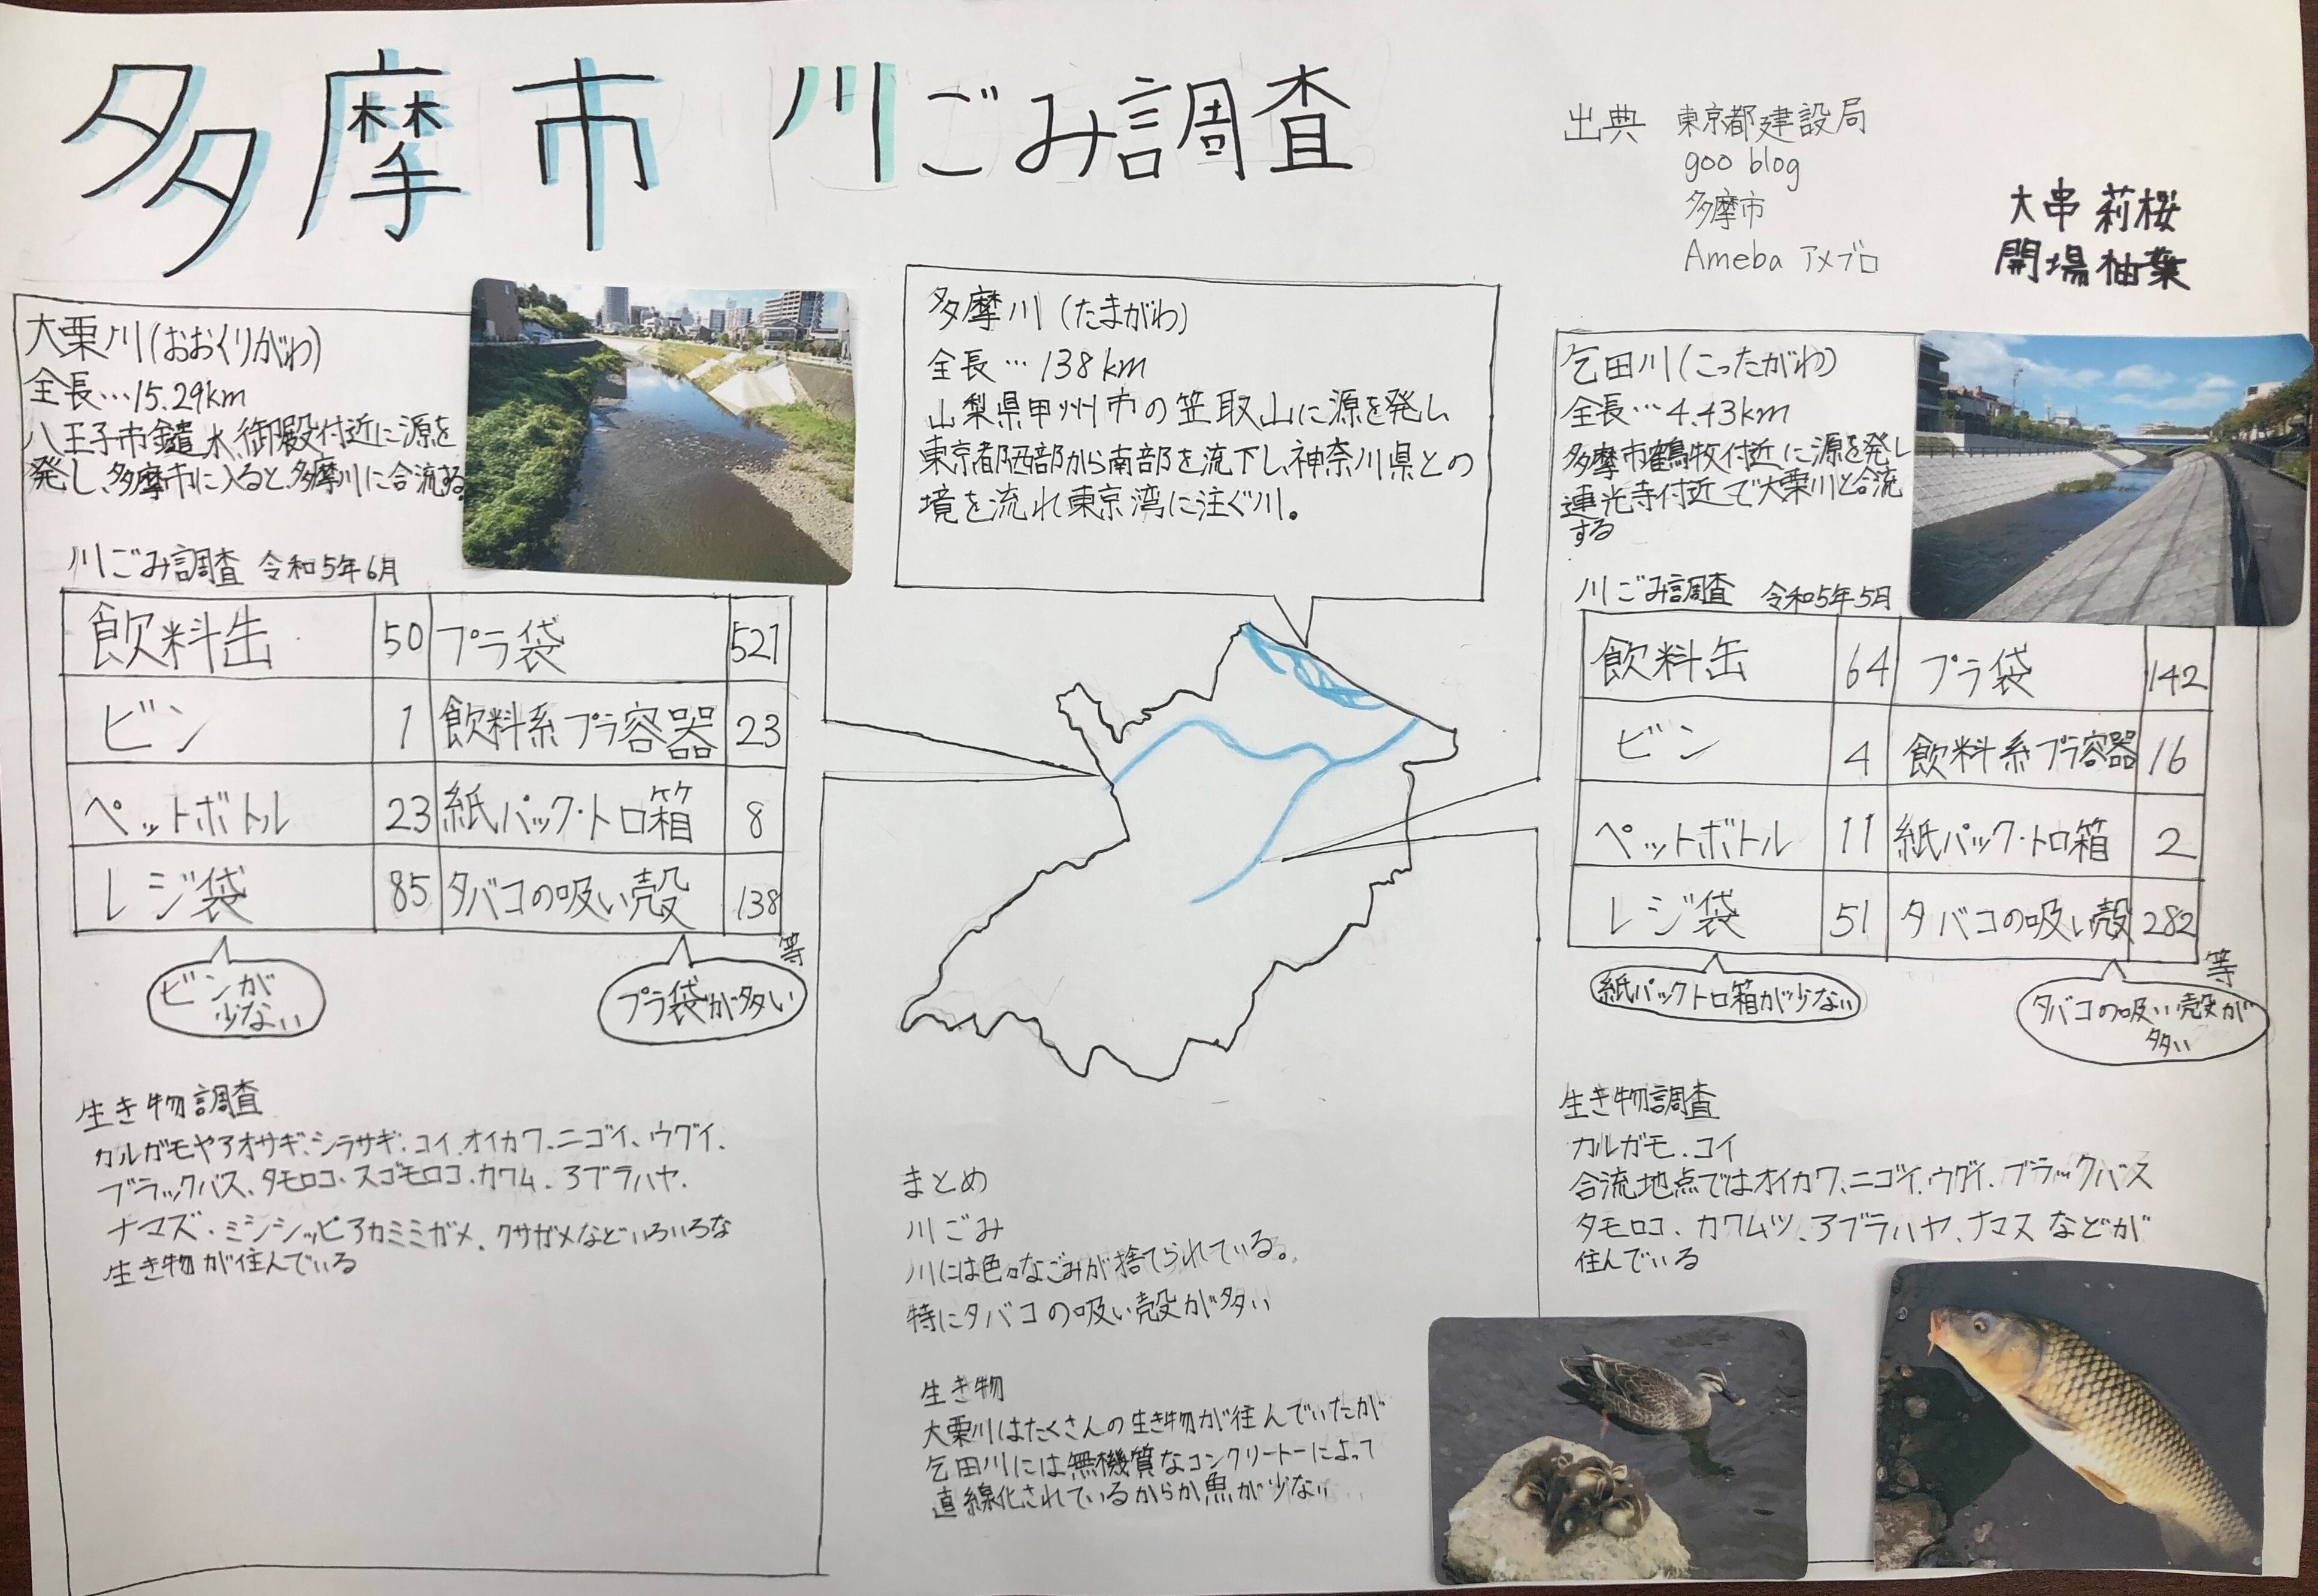 多摩市 川ごみ調査
出典 東京都建設局
goo blog
多摩市
Ameba アメブロ
大串 莉桜
開場 柚葉
大栗川(おおくりがわ)
全長…15.29km
八王子市鑓水御殿付近に源を
発し、多摩市に入ると、多摩川に合流する。
川ごみ調査 令和5年6月
飲料缶 50 プラ袋 521
ビン 1 飲料系プラ容器 23
ペットボトル 23 紙パック・トロ箱 8
レジ袋 85 タバコの吸い殻 138
等
ビンが
少ない
プラ袋が多い
生き物調査
カルガモやアオサギ、シラサギ、コイ、オイカワ、ニゴイ、ウグイ、
ブラックバス、タモロコ、スゴモロコ、カワム、アブラハヤ、
ナマズ、ミシシッピアカミミガメ、クサガメなどいろいろな
生き物が住んでいる
多摩川(たまがわ)
全長…138km
山梨県甲州市の笠取山に源を発し
東京都西部から南部を流下し、神奈川県との
境を流れ東京湾に注ぐ川。
まとめ
川ごみ
川には色々なごみが捨てられている。
特にタバコの吸い殻が多い
生き物
大栗川はたくさんの生き物が住んでいたが
乞田川には無機質なコンクリートーによって
直線化されているからか魚が少ない
乞田川(こったがわ)
全長…4.43km
多摩市鶴牧付近に源を発し
連光寺付近で大栗川と合流
する
川ごみ調査 令和5年5月
飲料缶 64 プラ袋 142
ビン 4 飲料系プラ容器 16
ペットボトル 11 紙パック・トロ箱 2
レジ袋 51 タバコの吸い殻 282
等
紙パックトロ箱が少ない
タバコの吸い殻が
多い
生き物調査
カルガモ、コイ
合流地点ではオイカワ、ニゴイ、ウグイ、ブラックバス
タモロコ、カワムツ、アブラハヤ、ナマス などが
住んでいる